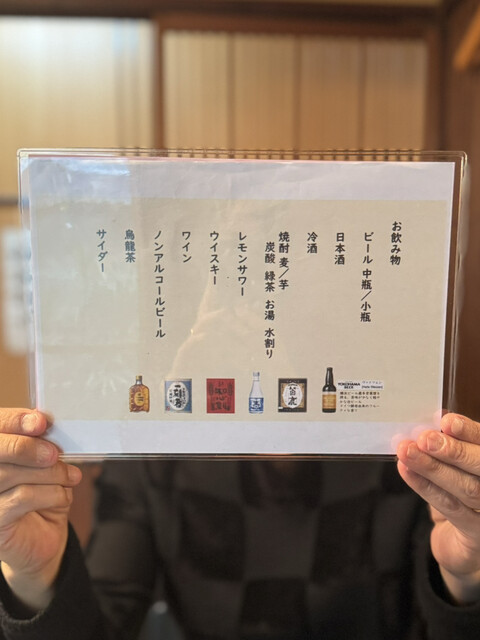 お飲み物
ビール 中瓶／小瓶
日本酒
冷酒
焼酎 麦／芋
炭酸 緑茶 お湯 水割り
レモンサワー
ウイスキー
ワイン
ノンアルコールビール
烏龍茶
サイダー
YOKOHAMA
BEER